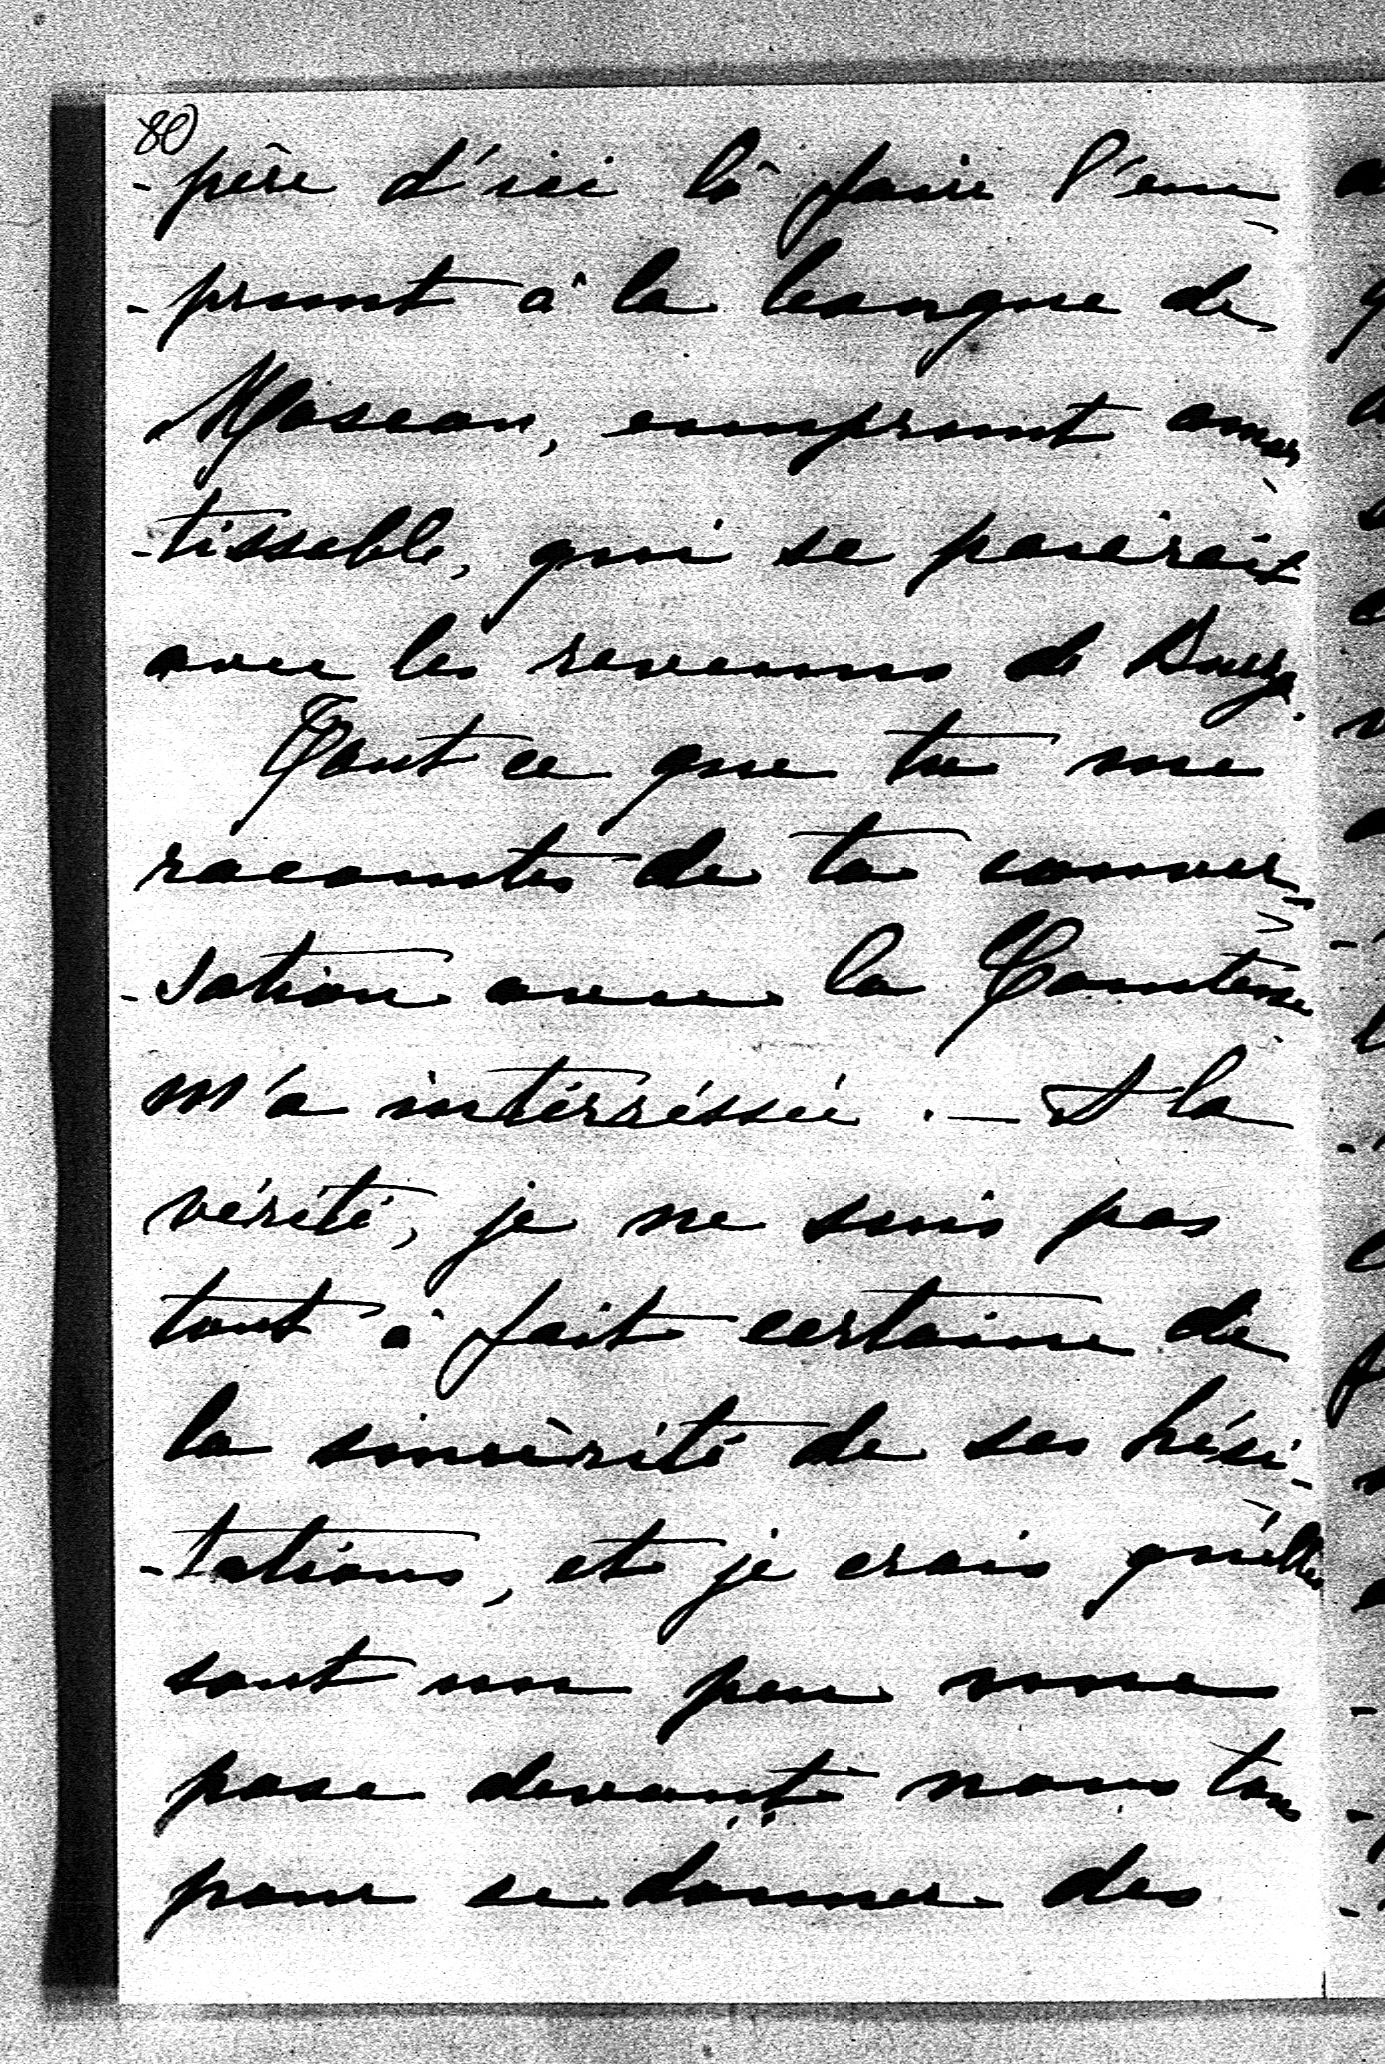 80)
-père d'ici là faire l'em-
-prunt à la banque de
Moscou, emprunt amor-
-tissable, qui se paierait
avec les revenus de Bury.
Tout ce que tu me
racontes de ta conver-
-sation avec la Comtesse
m'a intérréssée. — A la
vérité, je ne suis pas
tout à fait certaine de
la sincèrité de ses hési-
-tations, et je crois qu'elles
sont un peu une
pose devant nous tous
pour se donner des